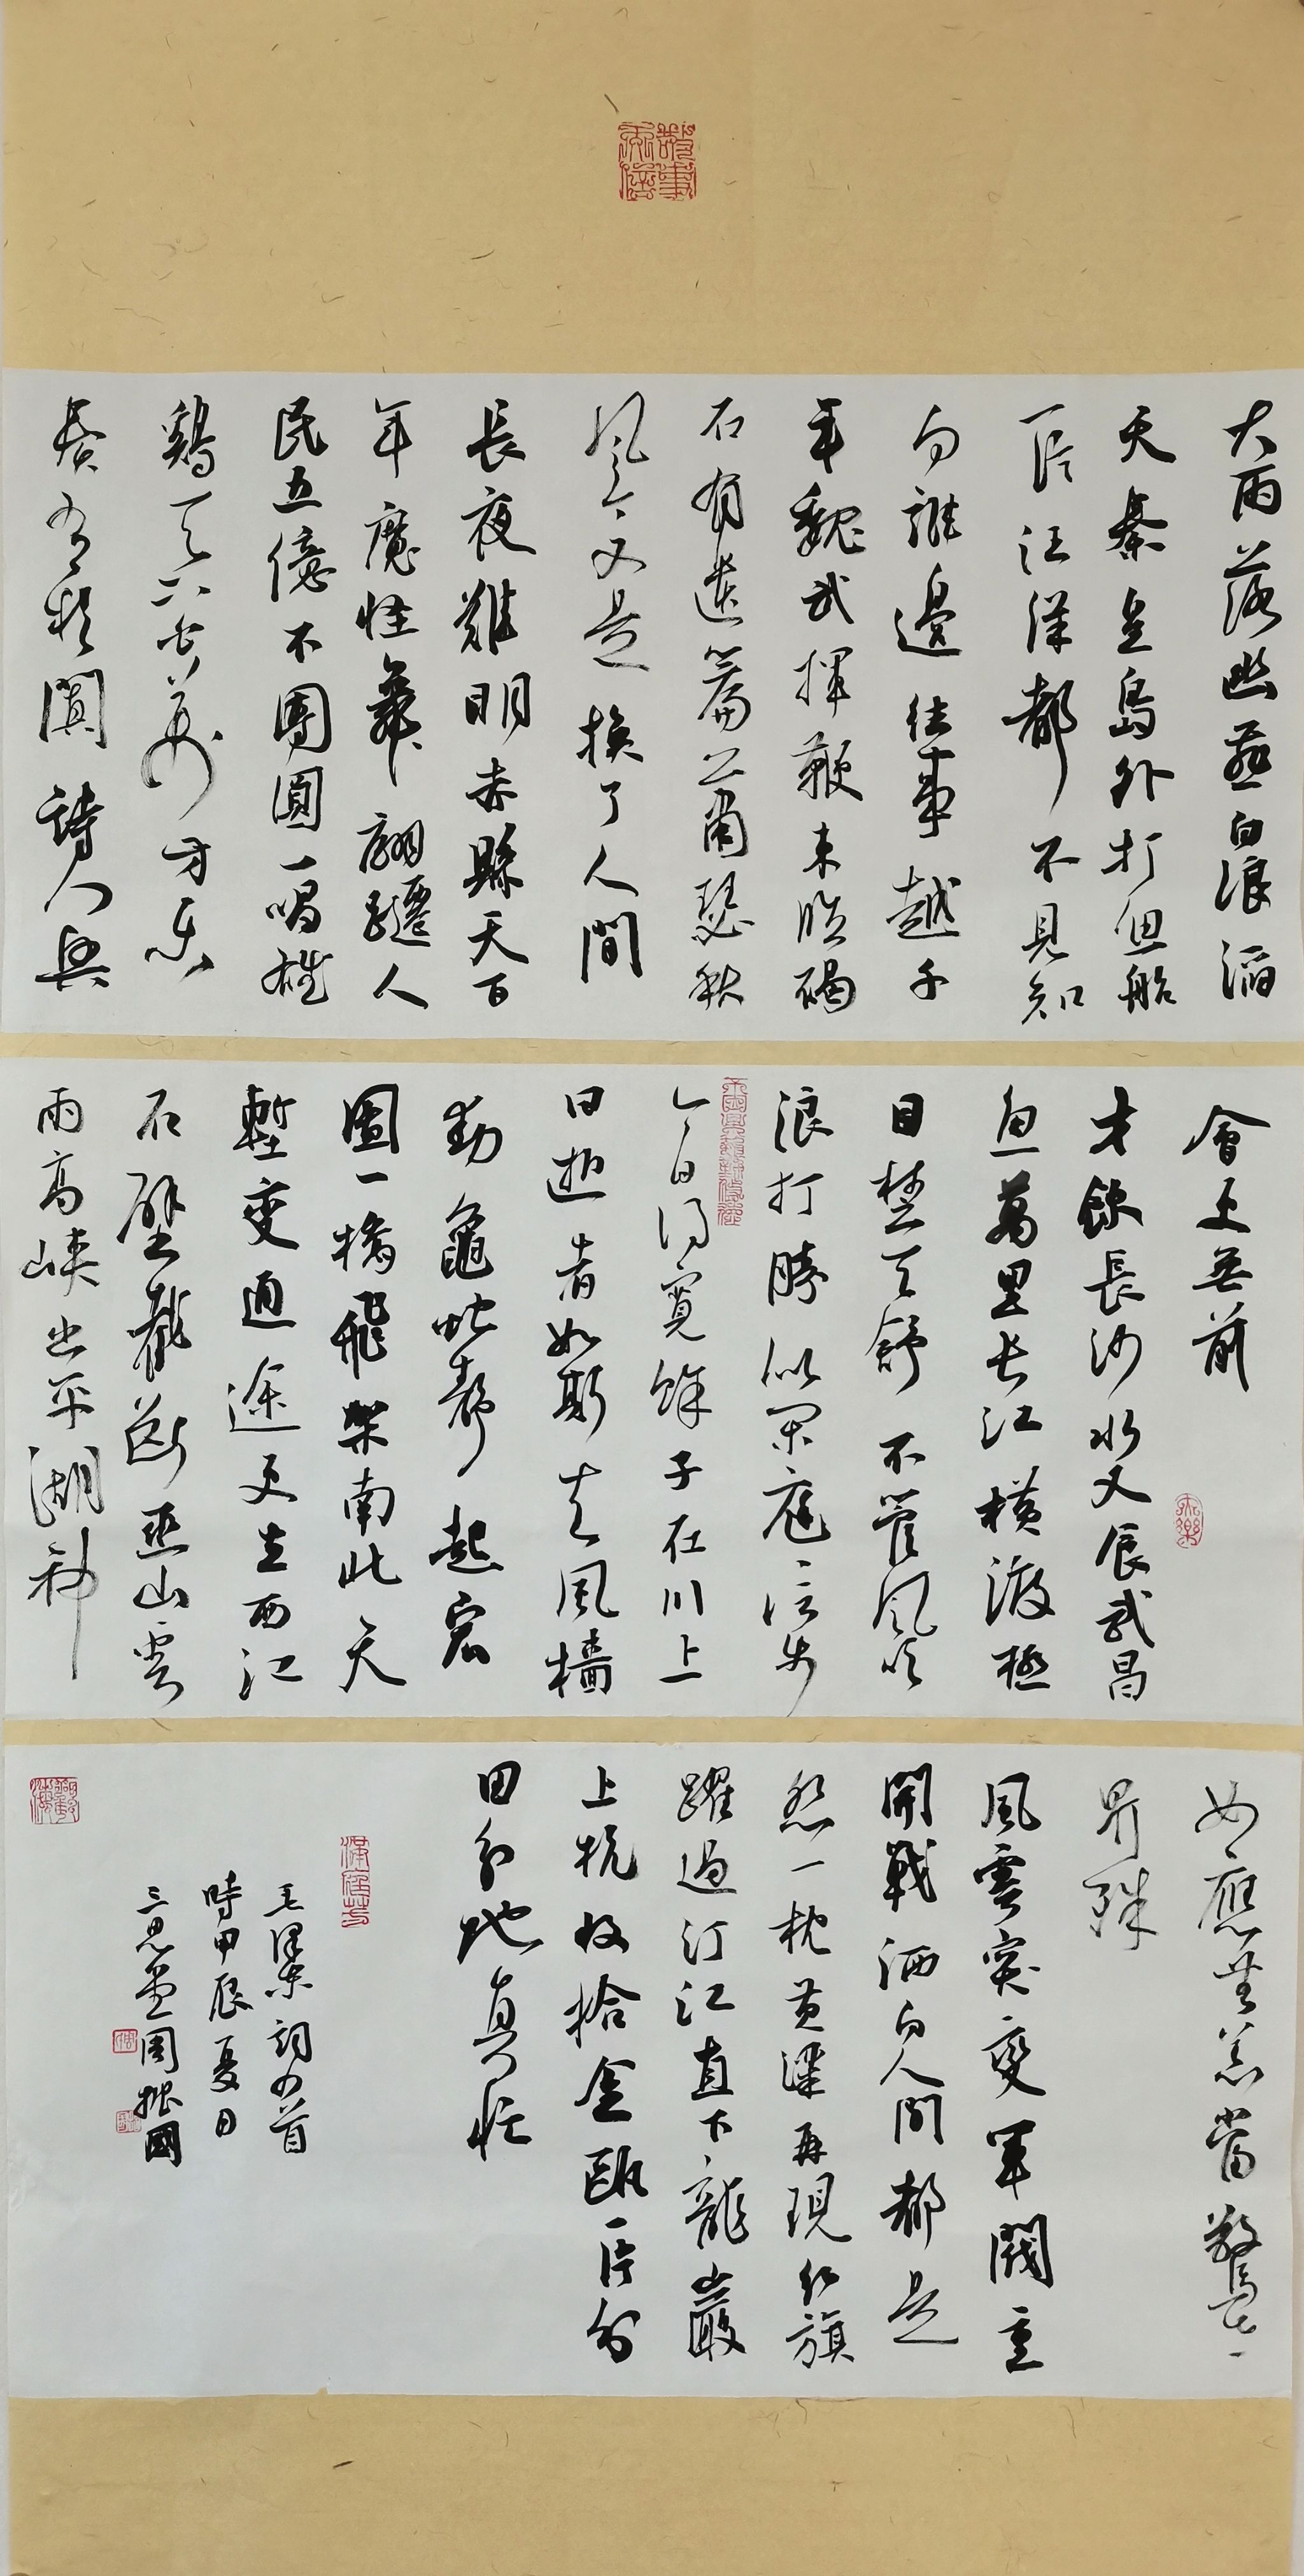 大雨落幽燕白浪滔
天秦皇島外打魚船
一片汪洋都不見知
向誰邊往事越千
年魏武揮鞭東臨碣
石有遺篇蕭瑟秋
風今又是換了人間
長夜難明赤縣天百
年魔怪舞翩躚人
民五億不團圓一唱雄
鷄天下白萬方樂
奏有于闐詩人興
會更無前
才飲長沙水又食武昌
魚萬里長江橫渡極
目楚天舒不管風吹
浪打勝似閑庭信步
今日得寬餘子在川上
曰逝者如斯夫風檣
動龜蛇静起宏
圖一橋飛架南北天
塹變通途更立西江
石壁截斷巫山雲
雨高峽出平湖神
女應無恙當驚世
界殊
風雲突變軍閥重
開戰洒向人間都是
怨一枕黄粱再現紅旗
躍過汀江直下龍巖
上杭收拾金甌一片分
田分地真忙
毛澤東詞四首
時甲辰夏日
三思堂周振國